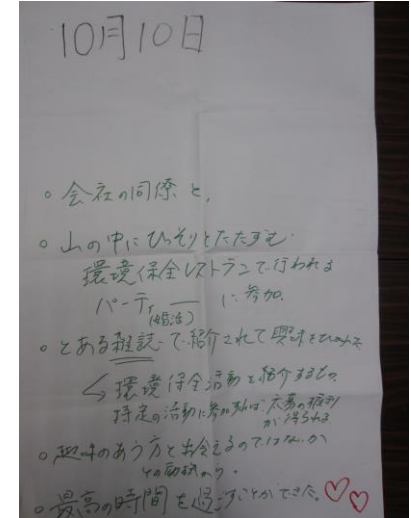 10月10日
。会社の同僚と、
。山の中にひっそりとたたずむ
環境保全レストランで行われる
パーティー に参加。
(婚活)
。とある雑誌で紹介されて興味をひかれ
↳環境保全活動を紹介するもの。
特定の活動に参加すれば、応募の権利
が得られる
。趣味のあう方と出会えるのではないか
との動機から。
。最高の時間を過すことができた。♡♡